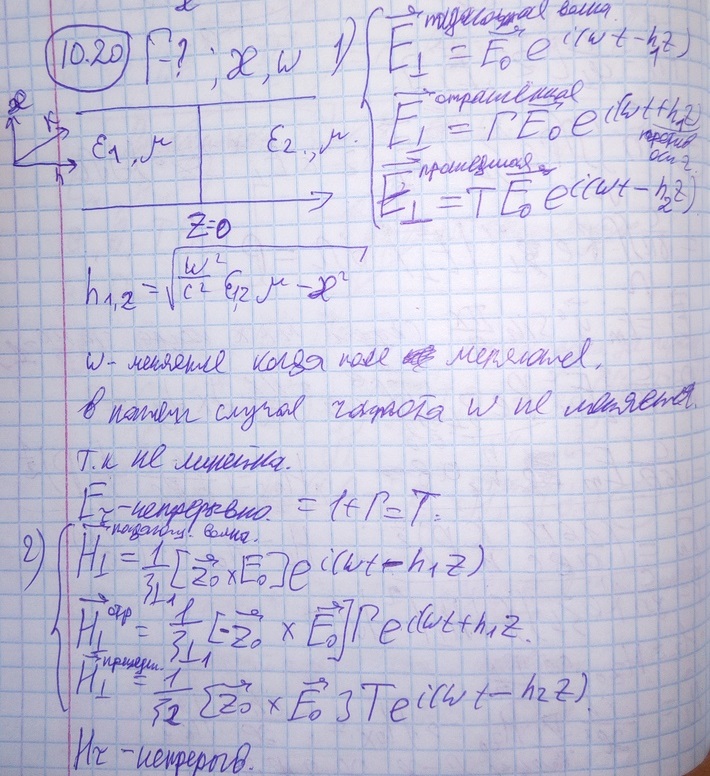 10.20 Г-? ; æ, ω 1)
падающая волна
E⃗⊥ = E⃗₀ e^{i(ωt - h₁z)}
отражённая
E⃗⊥ = Γ E⃗₀ e^{i(ωt + h₁z)}
против
оси z
прошедшая
E⃗⊥ = T E⃗₀ e^{i(ωt - h₂z)}
æ
k
h
ε₁, μ ε₂, μ
z=0
h₁,₂ = √(ω²/c² ε₁,₂ μ - æ²)
ω - меняется когда поле меняется,
в нашем случае частота ω не меняется
т.к не линейна.
Eτ - непрерывно. = 1+Γ=T.
2)
падающ. волна.
H⃗⊥ = 1/ζ⊥₁ [z⃗₀ × E⃗₀] e^{i(ωt - h₁z)}
H⃗⊥^{отр} = 1/ζ⊥₁ [-z⃗₀ × E⃗₀] Γ e^{i(ωt + h₁z}
прошедш.
H⃗⊥ = 1/ζ₂ [z⃗₀ × E⃗₀] T e^{i(ωt - h₂z)}
Hτ - непрерыв.